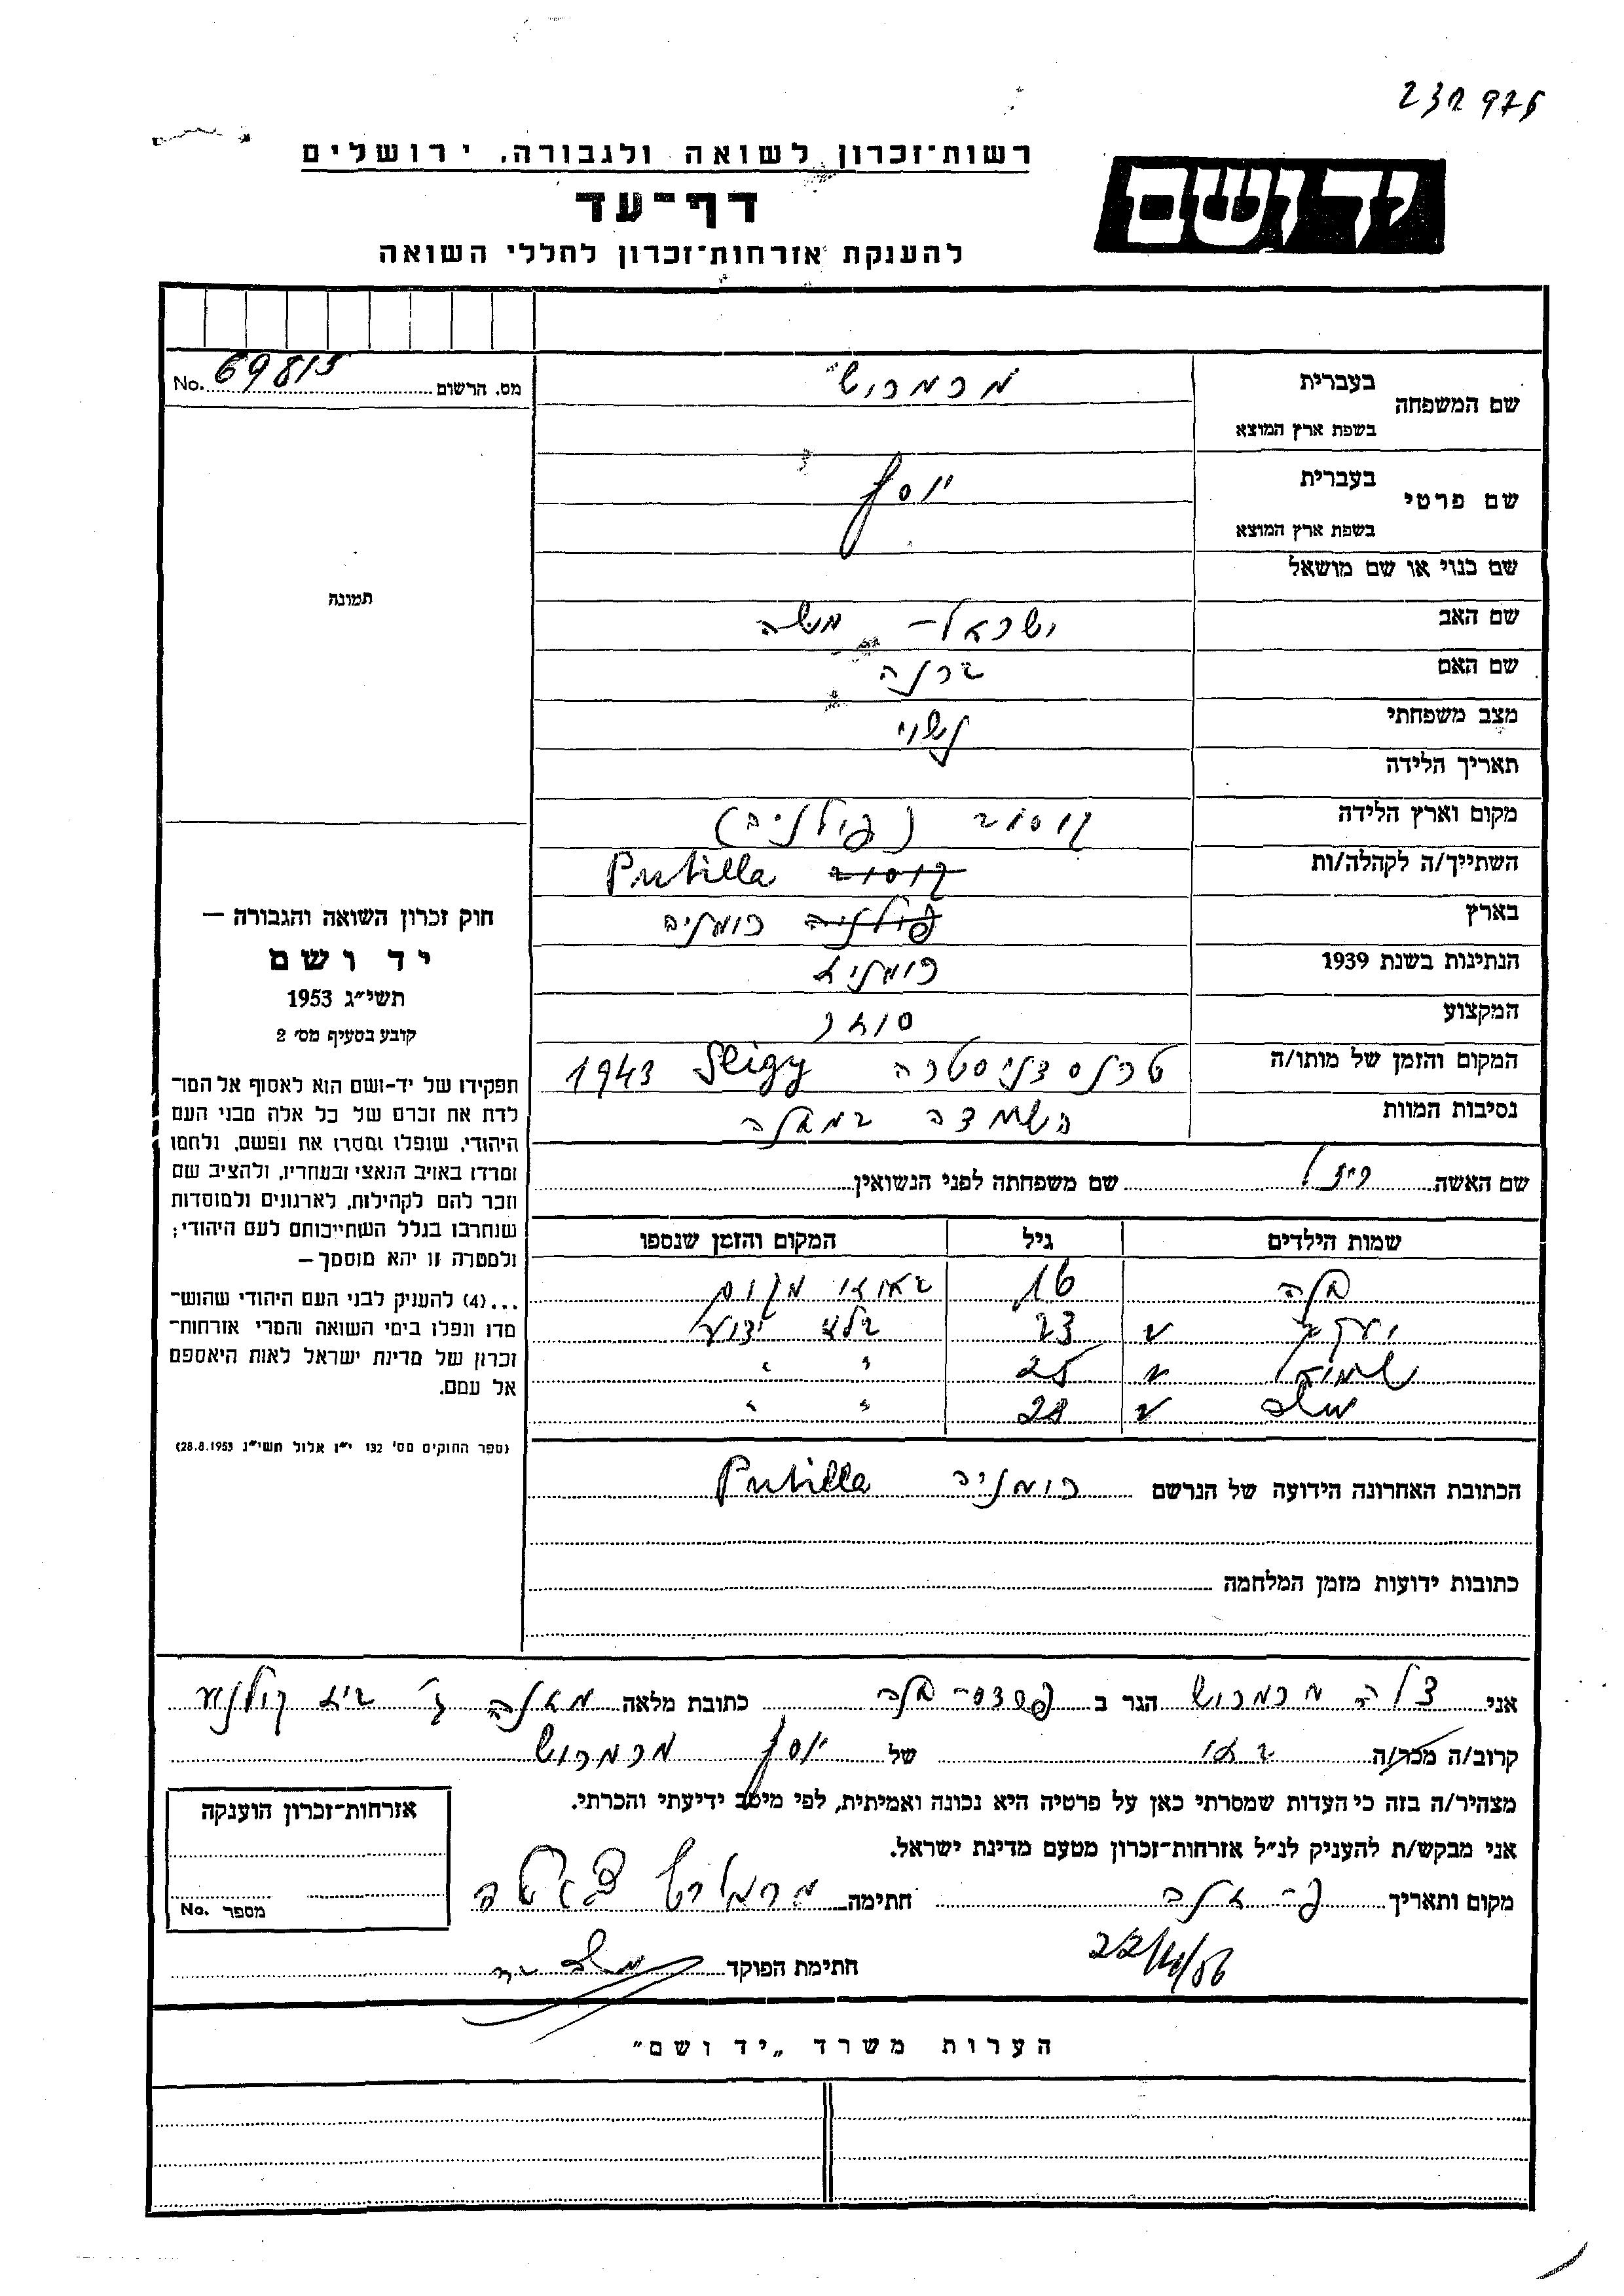 232975
רשות־זכרון לשואה ולגבורה, ירושלים
יד ושם
דף־עד
להענקת אזרחות־זכרון לחללי השואה
מס. הרשום No. 69815
שם המשפחה
בעברית
מרמרוש
בשפת ארץ המוצא
שם פרטי
בעברית
יוסף
בשפת ארץ המוצא
שם כנוי או שם מושאל
שם האב ישראל - משה
שם האם ברנה
מצב משפחתי נשוי
תאריך הלידה
מקום וארץ הלידה קוסוב (פולניה)
השתייך/ה לקהלה/ות קוסוב Putilla
בארץ פולניה רומניה
הנתינות בשנת 1939 רומניא
המקצוע סוחר
המקום והזמן של מותו/ה טרנסדניסטרה 1943
נסיבות המוות השמדה
שם האשה שם משפחתה לפני הנשואין
שמות הילדים גיל המקום והזמן שנספו
חנה 16 באותו מקום
יעקב 23 בלתי ידוע
שמואל 25 " "
משה 28 " "
הכתובת האחרונה הידועה של הנרשם רומניה Putilla
כתובות ידועות מזמן המלחמה
תמונה
חוק זכרון השואה והגבורה —
יד ושם
תשי״ג 1953
קובע בסעיף מס׳ 2
תפקידו של יד-ושם הוא לאסוף אל המו־
לדת את זכרם של כל אלה מבני העם
היהודי, שנפלו ומסרו את נפשם, נלחמו
ומרדו באויב הנאצי ובעוזריו, ולהציב שם
וזכר להם לקהילות, לארגונים ולמוסדות
שנחרבו בגלל השתייכותם לעם היהודי;
ולמטרה זו יהא מוסמך —
...(4) להעניק לבני העם היהודי שהוש־
מדו ונפלו בימי השואה והמרי אזרחות־
זכרון של מדינת ישראל לאות היאספם
אל עמם.
(ספר החוקים מס׳ 132 י״ז אלול תשי״ג 28.8.1953)
אני מרמרוש הגר ב פרדס-חנה כתובת מלאה בית קולנוע
קרוב/ה מכר/ה של יוסף מרמרוש
מצהיר/ה בזה כי העדות שמסרתי כאן על פרטיה היא נכונה ואמיתית, לפי מיטב ידיעתי והכרתי.
אני מבקש/ת להעניק לנ״ל אזרחות־זכרון מטעם מדינת ישראל.
מקום ותאריך חתימה
חתימת הפוקד
אזרחות־זכרון הוענקה
מספר No.
הערות משרד „יד ושם״